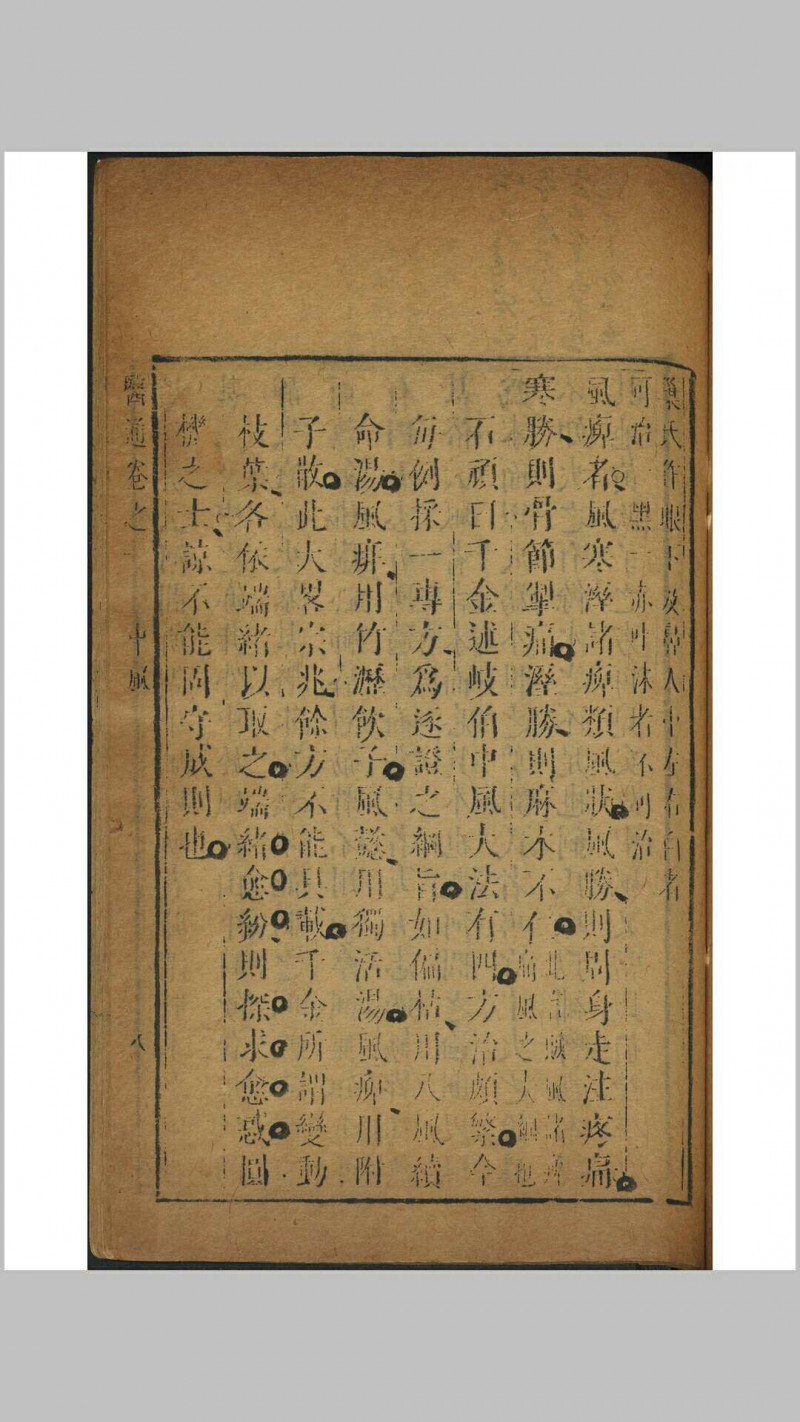 葉氏作眼下及鼻人中左右白者
可治一黑一赤吐沫者不可治
風痺者風寒溼諸痺類風狀風勝則周身走注疼痛
寒勝則骨節掣痛溼勝則麻木不仁
此訂賊風諸痺
痛風之大綱也
石頑曰千金述岐伯中風大法有四方治頗繁今
每例採一專方為逐證之綱旨如偏枯用八風續
命湯風痱用竹瀝飲子風懿用獨活湯風痺用附
子散此大畧宗兆餘方不能具載千金所謂變動
枝葉各依端緒以取之端緒愈紛則探求愈惑圓
機之士諒不能固守成則也
醫通卷之一 中風 八